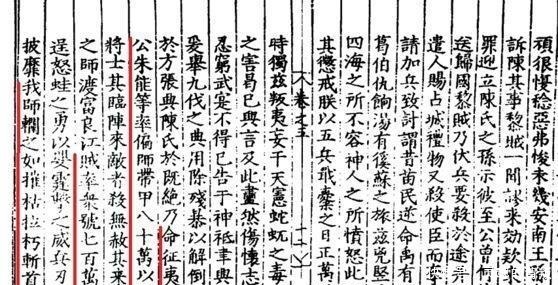 頑很慢稔惡弗悛未幾安南王
訴陳其事黎賊一聞謬来効款
罪迎立陳氏之孫示彼至公曾
送歸國黎賊乃伏兵要殺於途
遣人賜占城禮物又殺使臣而
請加兵致討謂昔苗民逆命禹有
葛伯仇餉湯有徯蘇之旅茲兇竪
四海之所不容神人之所憤怒此
其懲戒朕以五兵戢櫜之日正萬
卷之三
時獨茲叛夷妄干天憲蛇虺之毒
之害曷已興言及此盡然傷懷志
忍窮武寔不得已告于神祇聿興
爰舉九伐之典用除殘暴以解倒
於方張興陳氏於既絶乃命征夷
公朱能等率偏師帶甲八十萬以
將士其臨陳來敵者殺無赦其来
之師渡富良江賊率衆號七百萬
逞怒蛙之勇以 霆擊之威兵刃
披靡我師躪之如摧枯拉朽斬首